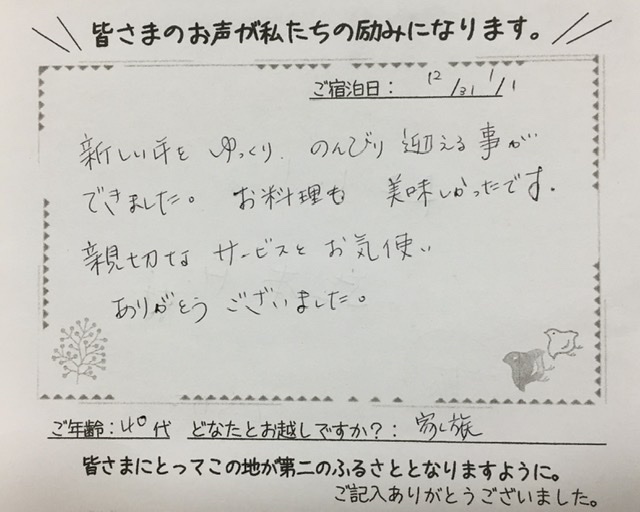 皆さまのお声が私たちの励みになります。
ご宿泊日： 12/31 1/1
新しい年を ゆっくり、のんびり 迎える事が
できました。 お料理も 美味しかったです.
親切な サービスと お気使い
ありがとう ございました。
ご年齢：40代 どなたとお越しですか？：家族
皆さまにとってこの地が第二のふるさととなりますように。
ご記入ありがとうございました。